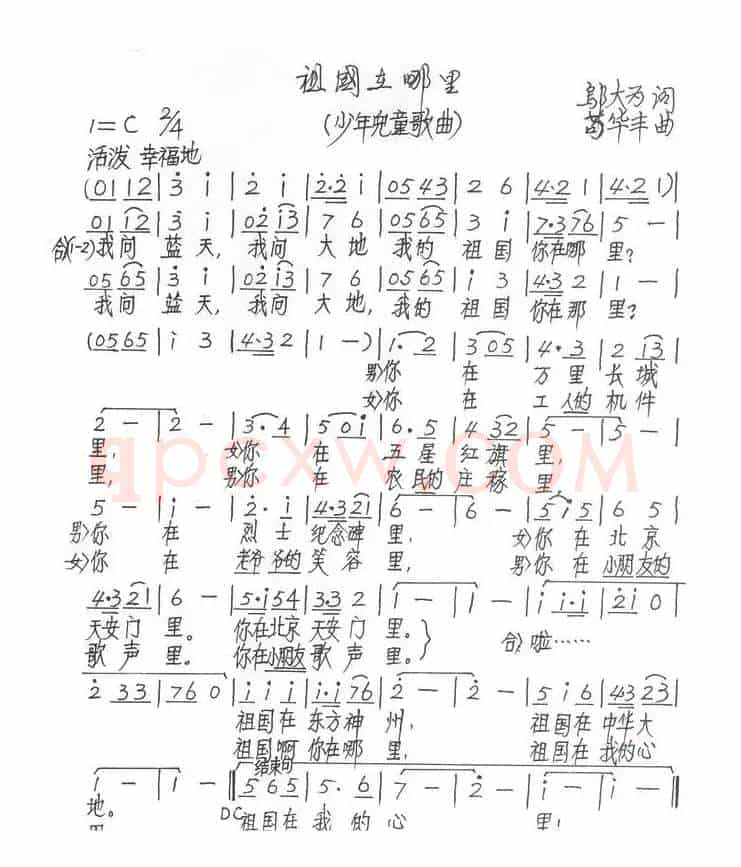 祖國在哪里
(少年兒童歌曲)
邬大为 词
苟华丰 曲
1=C 2/4
活泼 幸福地
(01 12 | 3 i | 2 i | 2·2 i | 05 43 | 2 6 | 4·2 1 | 4·2 1)
01 12 | 3 i | 02 i3 | 7 6 | 05 65 | 3 i | 7·3 76 | 5 — |
合(1-2)我问 蓝天, 我问 大地 我的 祖国 你在哪 里?
05 65 | 3 i | 02 i3 | 7 6 | 05 65 | i 3 | 4·3 2 | 1 — |
我问 蓝天, 我问 大地, 我的 祖国 你在那 里?
(05 65 | i 3 | 4·3 2 | 1 —) | 1·2 | 3 05 | 4·3 | 2 i3 |
男)你 在 万里 长城
女)你 在 工人的 机件
2 — | 2 — | 3·4 | 5 0i | 6·5 | 4 32 | 5 — | 5 — |
里, 女)你 在 五星 红旗 里,
里, 男)你 在 农民的 庄稼 里
qpcxw.COM
5 — | i — | 2·i | 4·3 21 | 6 — | 6 — | 5 i 5 | 6 5 |
男)你 在 烈士 纪念碑 里, 女)你 在 北京
女)你 在 老爷爷的 笑容 里, 男)你 在 小朋友的
4·3 21 | 6 — | 5·i 54 | 3·3 2 | 1 — | 1 — | i i·i | 2i 0 |
天安门 里。 你在北京 天安门 里。 合)啦……
歌声 里。 你在小朋友 歌声 里。
2 33 | 76 0 | i i i | i·i 76 | 2 — | 2 — | 5 i 6 | 43 23 |
祖国在 东方神 州, 祖国在 中华大
祖国啊 你在哪 里, 祖国在 我的心
i — | 1 — ‖ 5 65 | 5·6 | 7 — | 2 — | i — | i — ‖
结束句
地。 D.C 祖国在 我的 心 里!